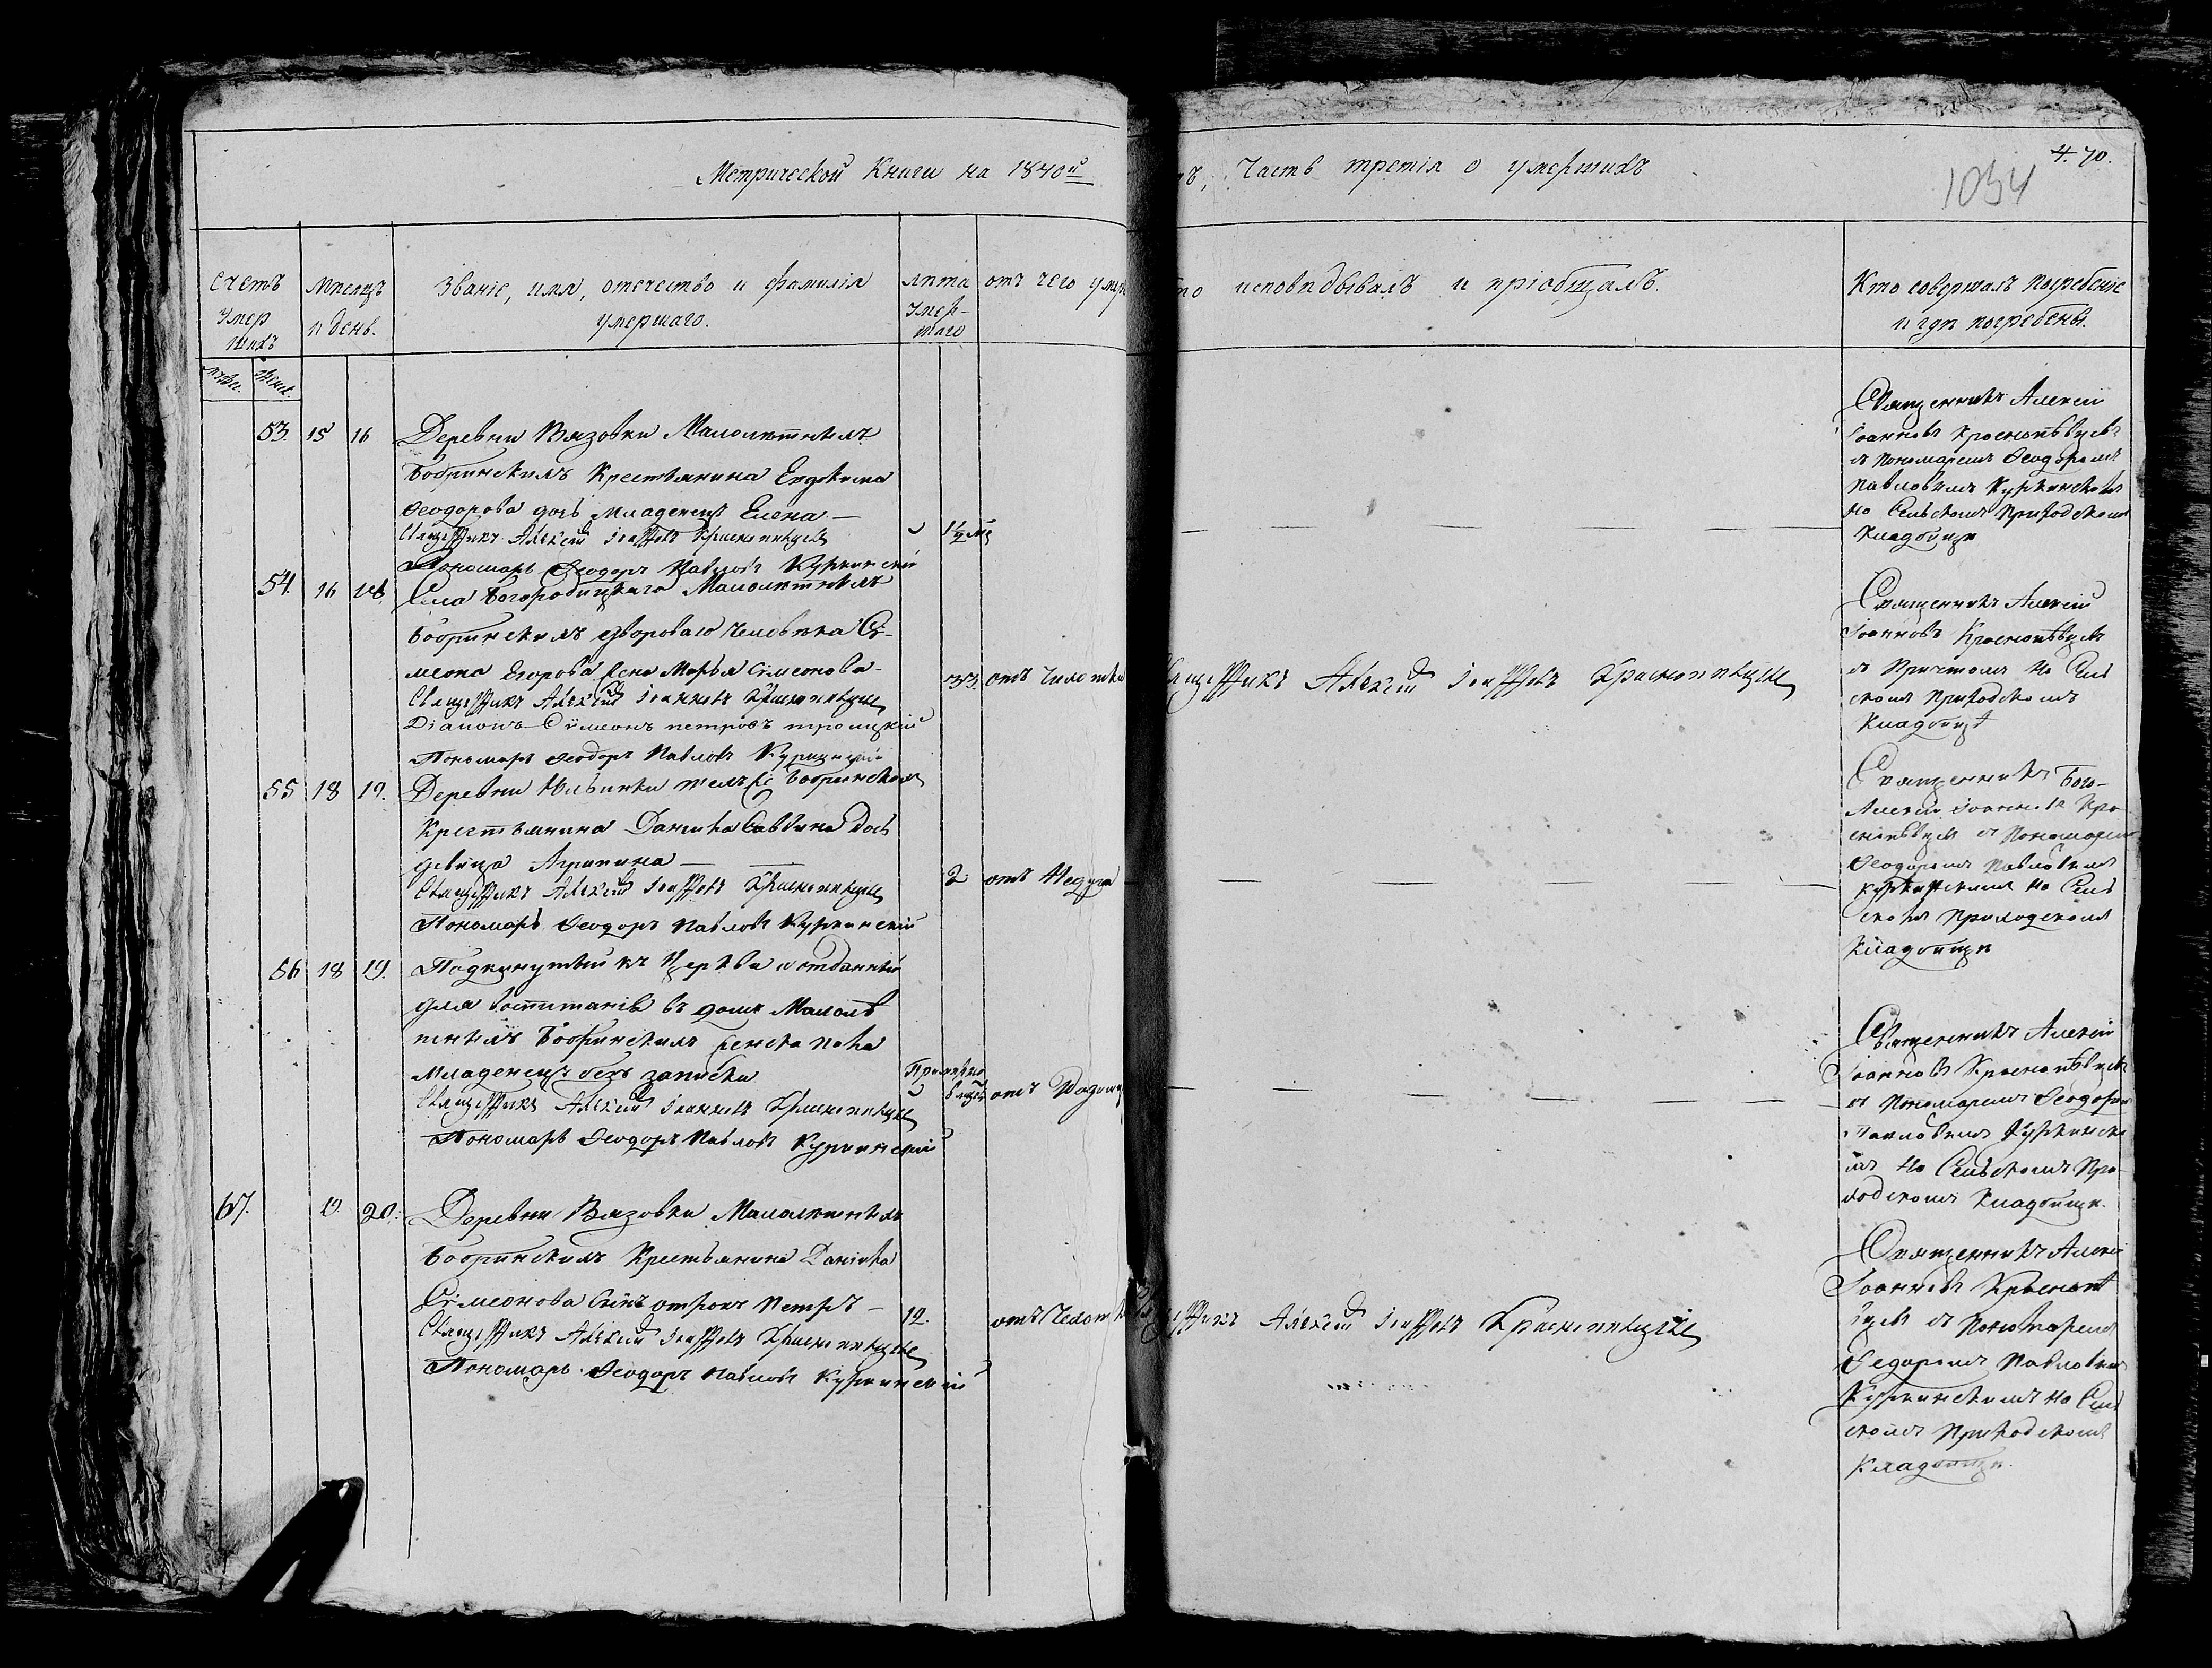 Метрической Книги на 1840й
Часть третія о умершихъ
4.70.
1034
Счетъ умершихъ
Мѣсяцъ и день.
Званіе, имя, отечество и фамилія
умершаго.
лѣта
умер-
шаго
отъ чего
исповѣдывалъ и пріобщалъ.
Кто совершалъ погребеніе
и гдѣ погребены.
Женск.
53. 15 16
Деревни Вязовки Малолѣтнихъ
Бобринскихъ Крестьянина Евдокима
Ѳеодорова дочь младенецъ Елена
1½ мц
Священникъ Алексій Іоанновъ Краснопѣвцевъ
Пономарь Ѳеодоръ Павловъ Куркинскій
Священникъ Алексій
Іоанновъ Краснопѣвцевъ
съ Пономаремъ Ѳеодоромъ
Павловымъ Куркинскимъ
На Сельскомъ Приходскомъ
Кладбищѣ
54. 16 18.
Села Богородицкаго Малолѣтнихъ
Бобринскихъ двороваго человѣка Сѵ-
меона Егорова жена Марья Сѵмеонова
33. отъ Чахотки
Священникъ Алексій Іоанновъ Краснопѣвцевъ
Діаконъ Сѵмеонъ Петровъ Троицкій
Пономарь Ѳеодоръ Павловъ Куркинскій
Священникъ Алексій Іоанновъ Краснопѣвцевъ
Священникъ Алексій
Іоанновъ Краснопѣвцевъ
съ Причтомъ На Сель
скомъ Приходскомъ
Кладбищѣ
55 18 19.
Деревни тѣхъ же Бобринскихъ
Крестьянина Даниила Саввина дочь
дѣвица Агрипина
2 отъ Недуга
Священникъ Алексій Іоанновъ Краснопѣвцевъ
Пономарь Ѳеодоръ Павловъ Куркинскій
Священникъ Бого-
Алексій Іоанновъ Кра
снопѣвцевъ съ Пономаремъ
Ѳеодоромъ Павловымъ
Куркинскимъ На Сель
скомъ Приходскомъ
Кладбищѣ
56 18 19.
Подкинутый къ Церкви и отданный
для воспитанія въ домъ Малолѣ
тнихъ Бобринскихъ женска пола
Младенецъ безъ записки
Примѣрно
отъ
Священникъ Алексій Іоанновъ Краснопѣвцевъ
Пономарь Ѳеодоръ Павловъ Куркинскій
Священникъ Алексій
Іоанновъ Краснопѣвцевъ
съ Пономаремъ Ѳеодоромъ
Павловымъ Куркински
мъ На Сельскомъ При-
ходскомъ Кладбищѣ.
67. 19 20.
Деревни Вязовки Малолѣтнихъ
Бобринскихъ Крестьянина Даніила
Сѵмеонова сынъ отрокъ Петръ
12. отъ Чахотки
Священникъ Алексій Іоанновъ Краснопѣвцевъ
Пономарь Ѳеодоръ Павловъ Куркинскій
Священникъ Алексій Іоанновъ Краснопѣвцевъ
Священникъ Алексій
Іоанновъ Краснопѣ
вцевъ съ Пономаремъ
Ѳедоромъ Павловымъ
Куркинскимъ На Сель
скомъ Приходскомъ
Кладбищѣ.